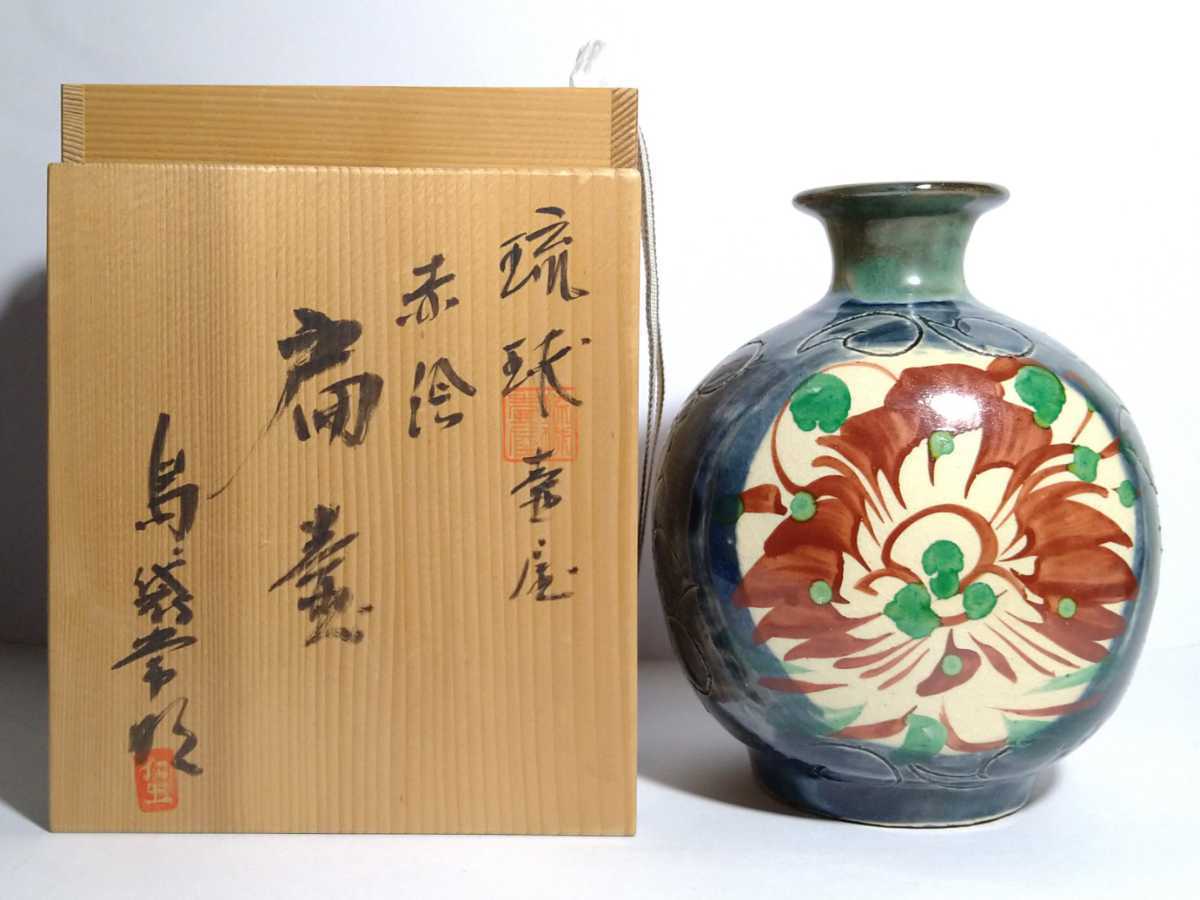 琉球壺屋
赤絵
扁壷
島袋常明